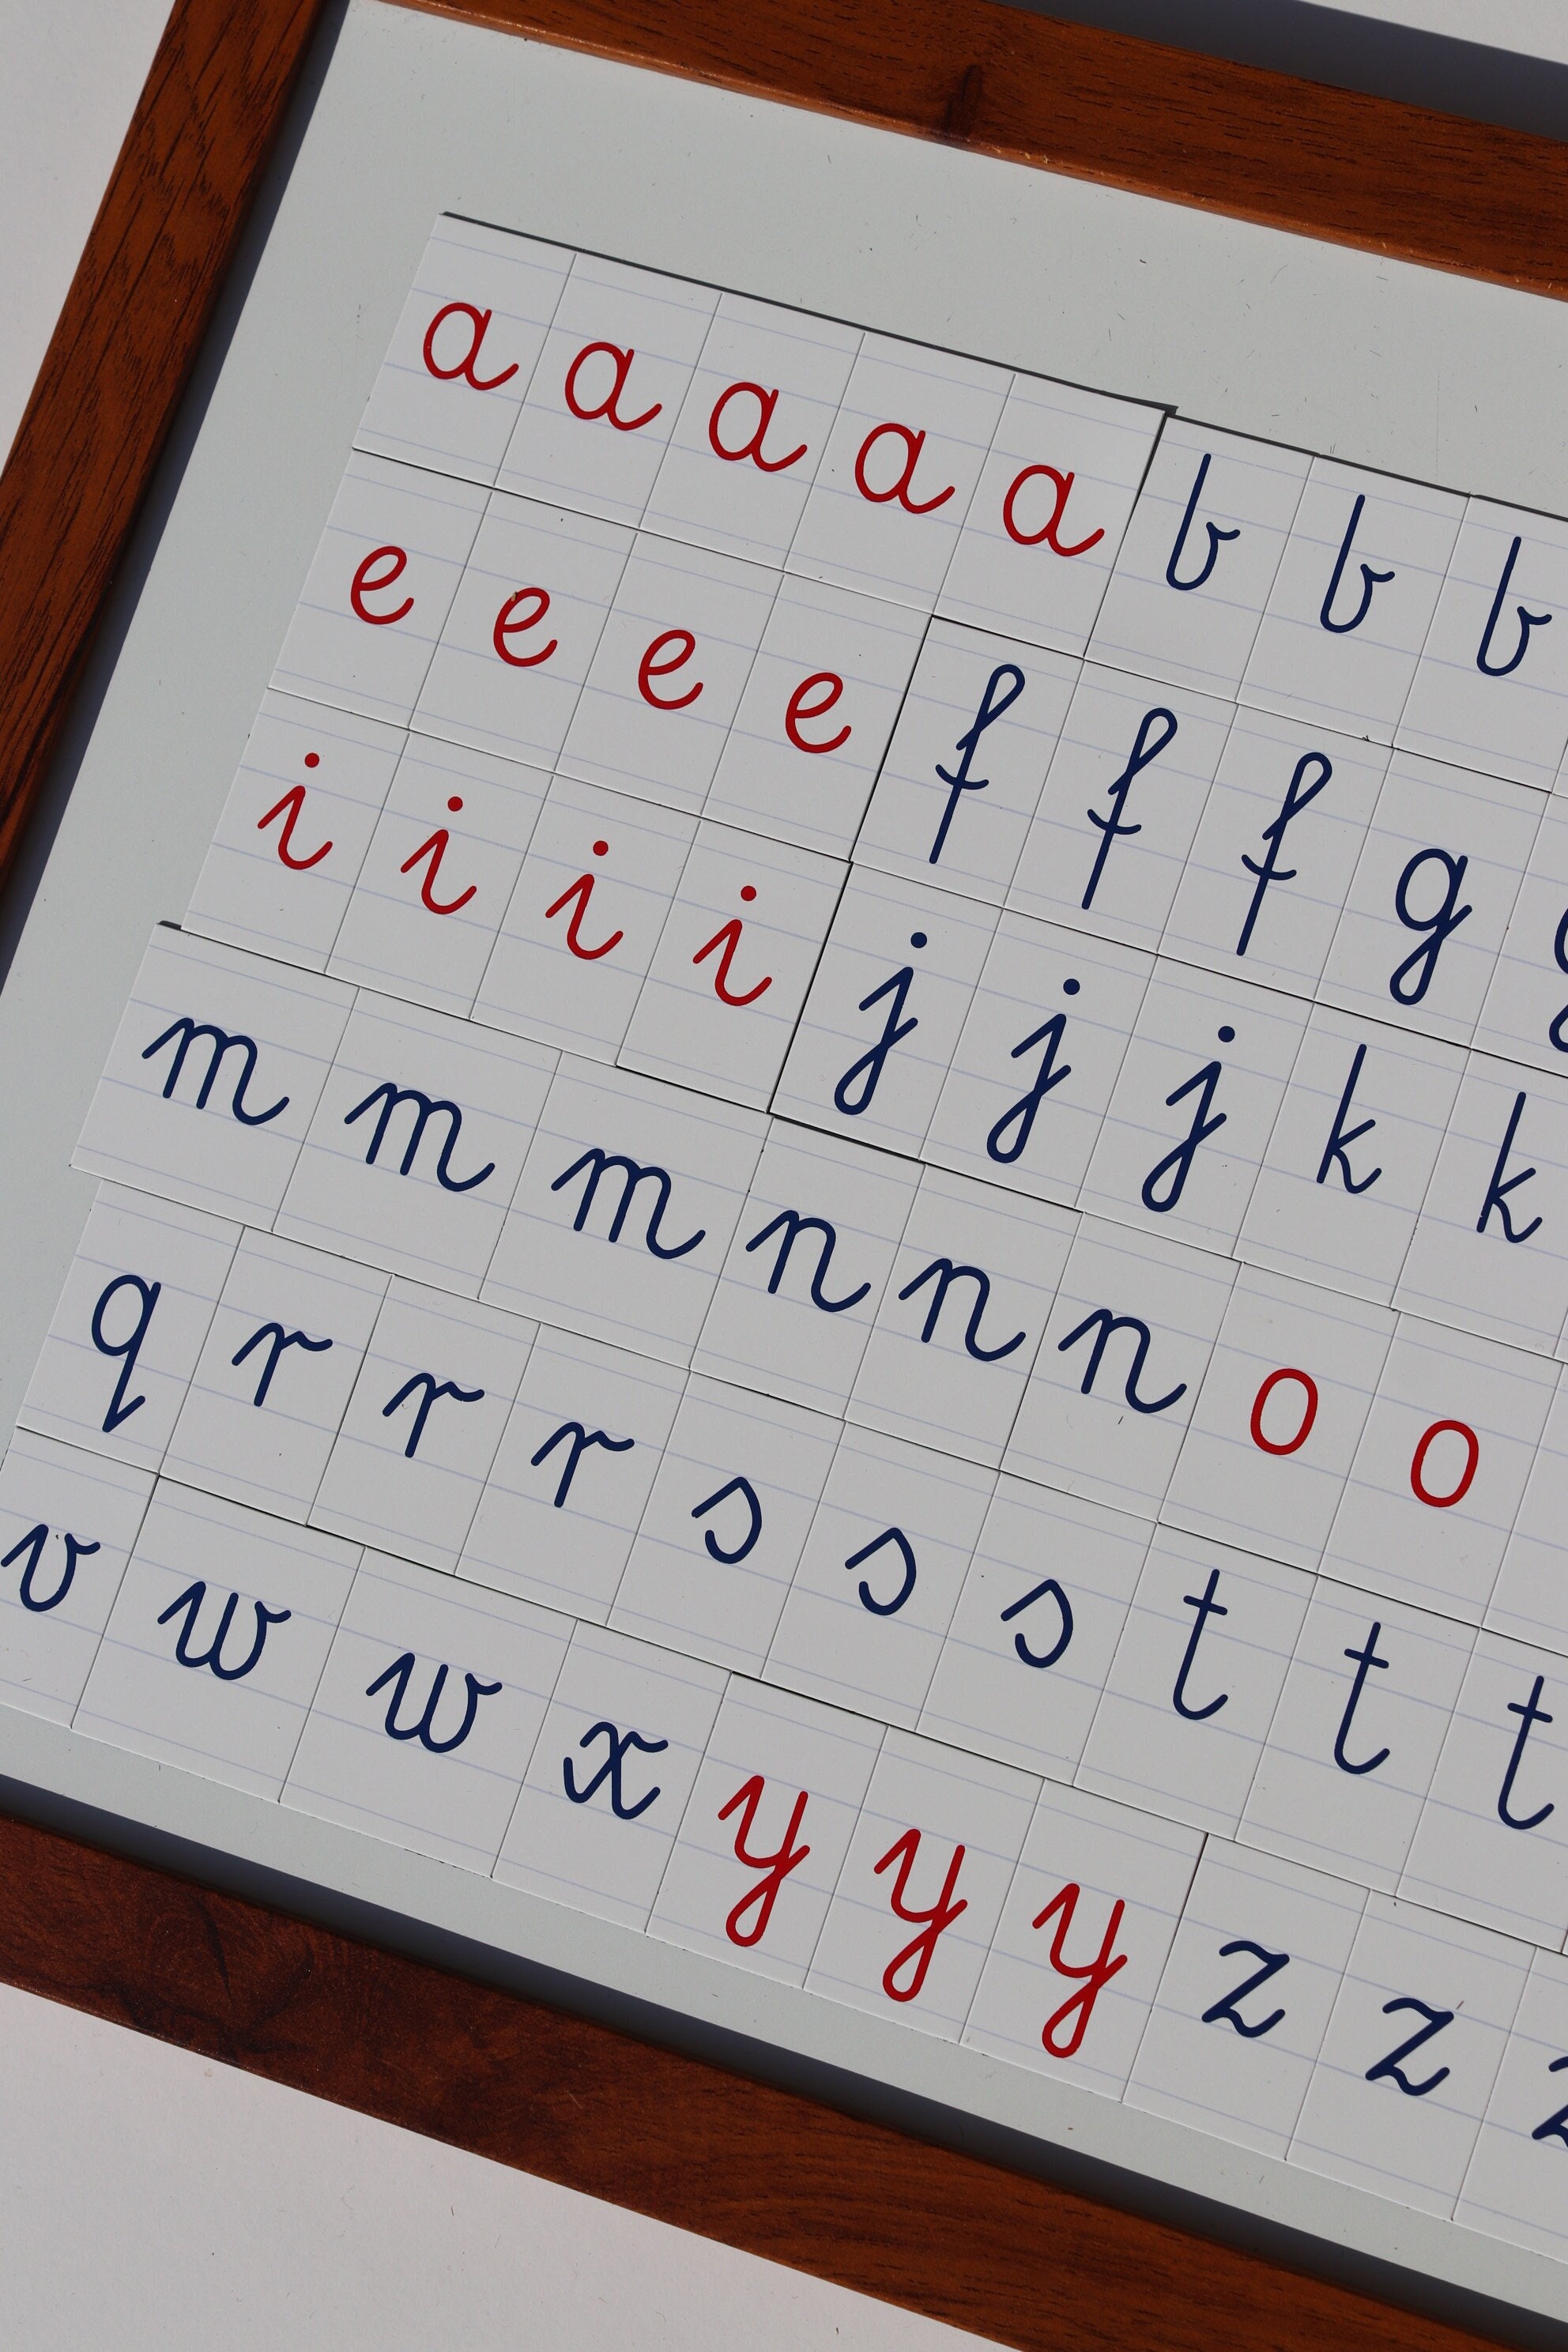 a a a a a b b b
e e e e f f f g
i i i i j j j k k
m m m n n n o o
q r r r s s s t t t
v w w x y y y z z